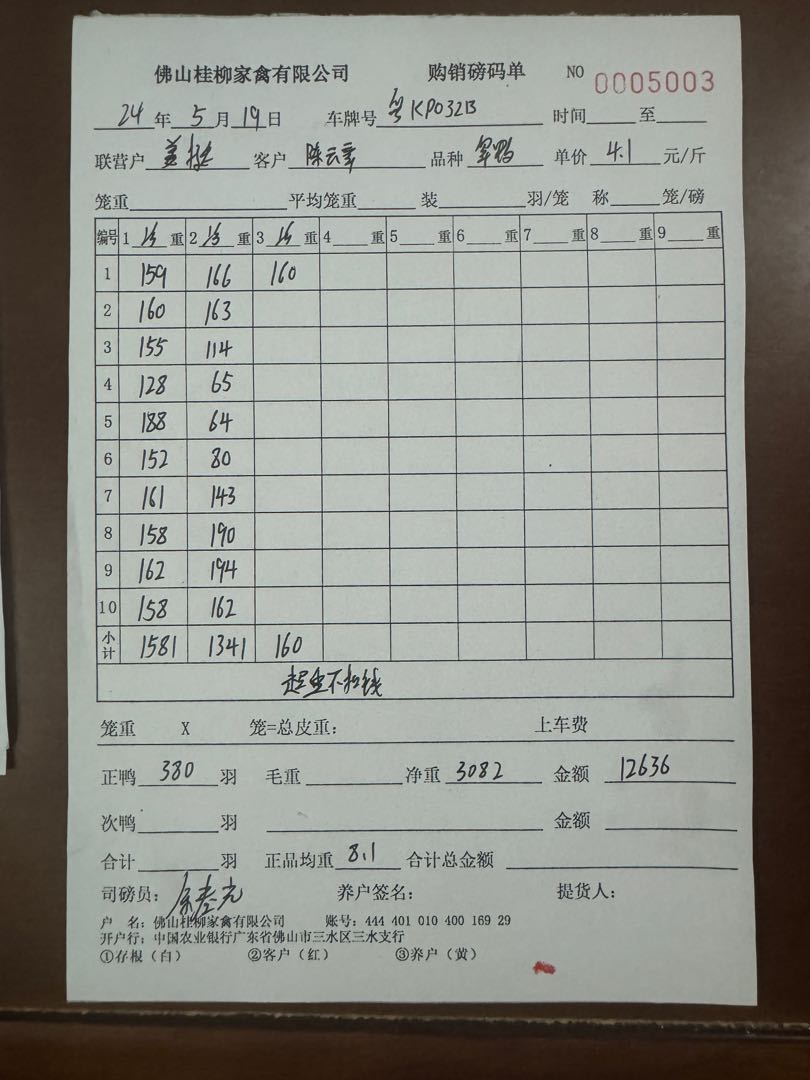 佛山桂柳家禽有限公司 购销磅码单 NO 0005003
24年5月19日 车牌号 粤KP032B 时间 至
联营户 客户 陈云 品种 单价 4.1 元/斤
笼重 平均笼重 装 羽/笼 称 笼/磅
编号 1 重 2 重 3 重 4 重 5 重 6 重 7 重 8 重 9 重
1 159 166 160
2 160 163
3 155 114
4 128 65
5 188 64
6 152 80
7 161 143
8 158 190
9 162 194
10 158 162
小计 1581 1341 160
不扣钱
笼重 X 笼=总皮重: 上车费
正鸭 380 羽 毛重 净重 3082 金额 12636
次鸭 羽 金额
合计 羽 正品均重 8.1 合计总金额
司磅员: 养户签名: 提货人:
户 名: 佛山桂柳家禽有限公司 账号: 444 401 010 400 169 29
开户行: 中国农业银行广东省佛山市三水区三水支行
①存根（白） ②客户（红） ③养户（黄）